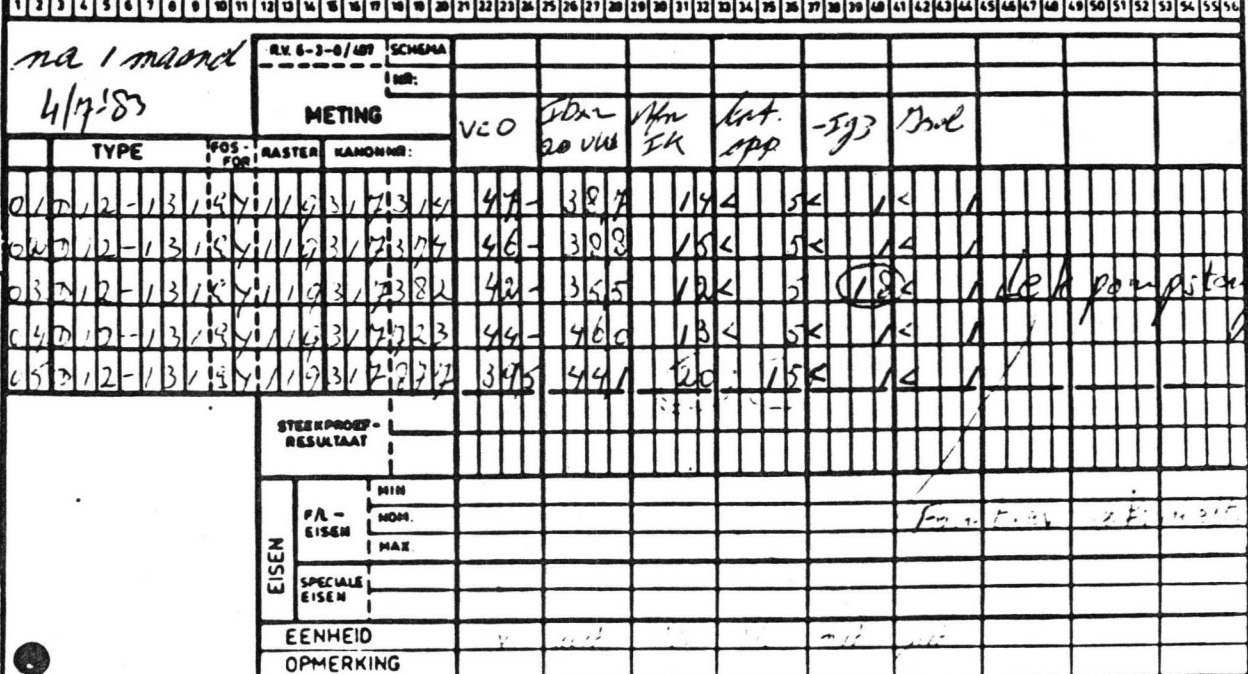 1 2 3 4 5 6 7 8 9 10 11 12 13 14 15 16 17 18 19 20 21 22 23 24 25 26 27 28 29 30 31 32 33 34 35 36 37 38 39 40 41 42 43 44 45 46 47 48 49 50 51 52 53 54 55 56
na 1 maand
4/7-'83
R.V. 6-3-0/487 SCHEMA
NR:
METING
VCO 20 IK opp. -Ig3
TYPE FOS-FOR RASTER KANONNR:
01 D12-131 GY 119 317314 47- 387 14 < 5 < 1 < 1
02 D12-131 GY 119 317374 46- 393 15 < 5 < 1 < 1
03 D12-131 GY 119 317382 42- 355 12 < 5 18 < 1 lek pompsteng
04 D12-131 GY 119 317723 44- 460 13 < 5 < 1 < 1
05 D12-131 GY 119 317877 395 441 20 15 < 1 < 1
STEEKPROEF-
RESULTAAT
EISEN
F/L-
EISEN
MIN
NOM.
MAX.
SPECIALE
EISEN
EENHEID
OPMERKING